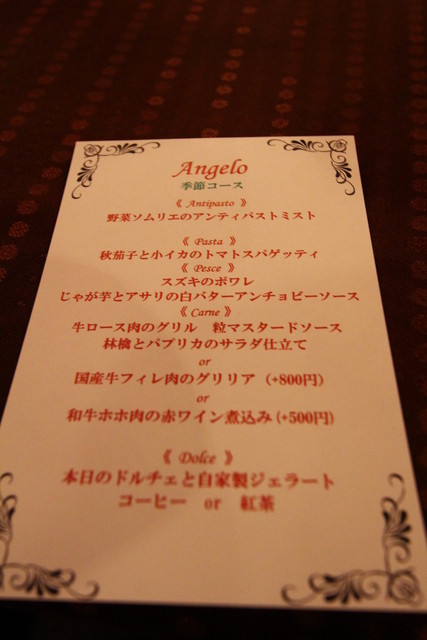 Angelo
季節コース
《 Antipasto 》
野菜ソムリエのアンティパストミスト
《 Pasta 》
秋茄子と小イカのトマトスパゲッティ
《 Pesce 》
スズキのポワレ
じゃが芋とアサリの白バターアンチョビーソース
《 Carne 》
牛ロース肉のグリル 粒マスタードソース
林檎とパプリカのサラダ仕立て
or
国産牛フィレ肉のグリリア (+800円)
or
和牛ホホ肉の赤ワイン煮込み(+500円)
《 Dolce 》
本日のドルチェと自家製ジェラート
コーヒー or 紅茶